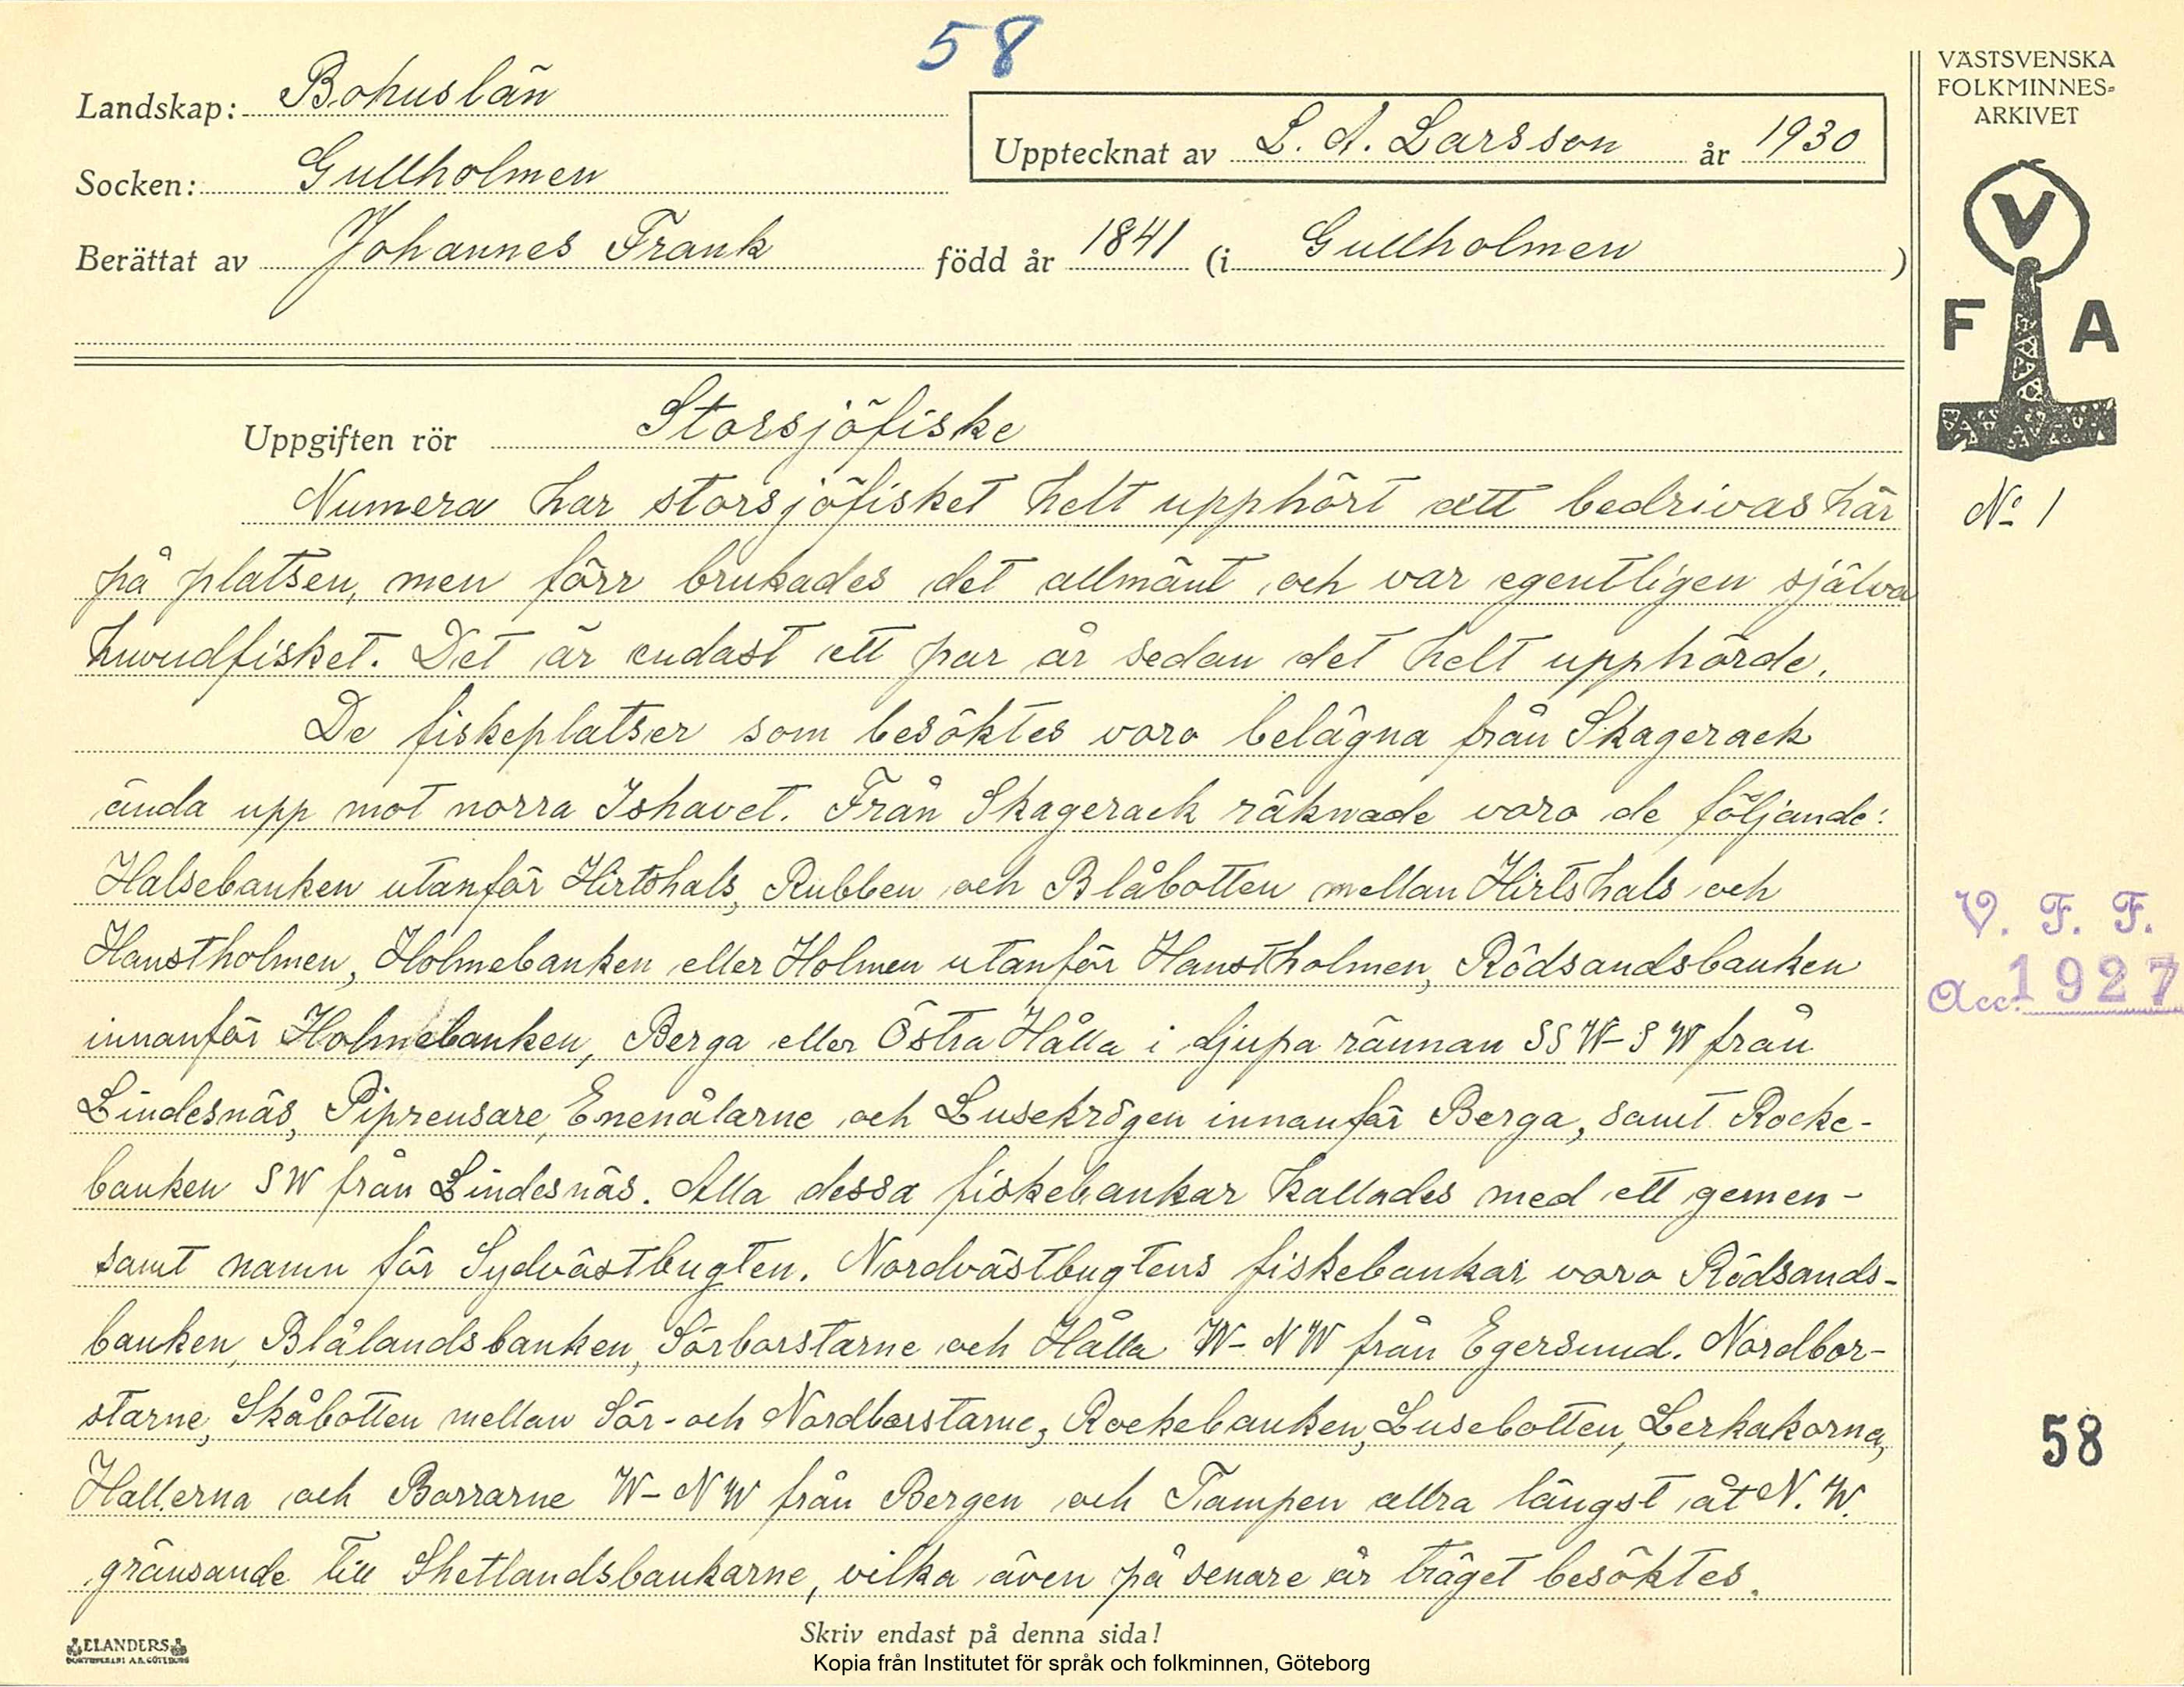 58
VÄSTSVENSKA
FOLKMINNES-
ARKIVET
Landskap: Bohuslän
Upptecknat av L. A. Larsson år 1930
Socken: Gullholmen
Berättat av Johannes Frank född år 1841 (i Gullholmen )
V
F A
Uppgiften rör Storsjöfiske
Nº 1
Numera har storsjöfisket helt upphört att bedrivas här
på platsen, men förr brukades det allmänt och var egentligen själva
huvudfisket. Det är endast ett par år sedan det helt upphörde.
De fiskeplatser som besöktes voro belägna från Skagerack
ända upp mot norra Ishavet. Från Skagerack räknade voro de följande:
Halsebanken utanför Hirtshals, Rubben och Blåbotten mellan Hirtshals och
Hanstholmen, Holmebanken eller Holmen utanför Hanstholmen, Rödsandsbanken
innanför Holmebanken, Berga eller Östra Hålla i djupa rännan SSW-SW från
Lindesnäs, Piprensare, Enenålarne och Lusekrögen innanför Berga, samt Rocke-
banken SW från Lindesnäs. Alla dessa fiskebankar kallades med ett gemen-
samt namn för Sydvästbugten. Nordvästbugtens fiskebankar voro Rödsands-
banken, Blålandsbanken, Sörborstarne och Hålla W-NW från Egersund. Nordbor-
starne, Skåbotten mellan Sör- och Nordborstarne, Rockebanken, Lusebotten, Lerkakorna,
Hallerna och Borrarne W-NW från Bergen och Tampen allra längst åt N.W.
gränsande till Shetlandsbankarne, vilka även på senare år träget besöktes.
V. F. F.
Acc. 1927
58
ELANDERS
BOKTRYCKERI A.B. GÖTEBORG
Skriv endast på denna sida!
Kopia från Institutet för språk och folkminnen, Göteborg